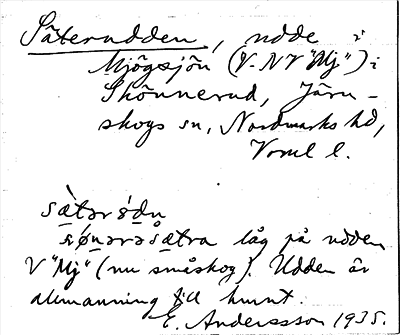 Säterudden, udde i
Mjögsjön (V-NV "Mj") i
Skönnerud, Järn-
skogs sn, Nordmarks hd,
Vrml l.
låg på udden
V "Mj" (nu småskog). Udden är
allmänning till hunt.
E. Andersson 1935.